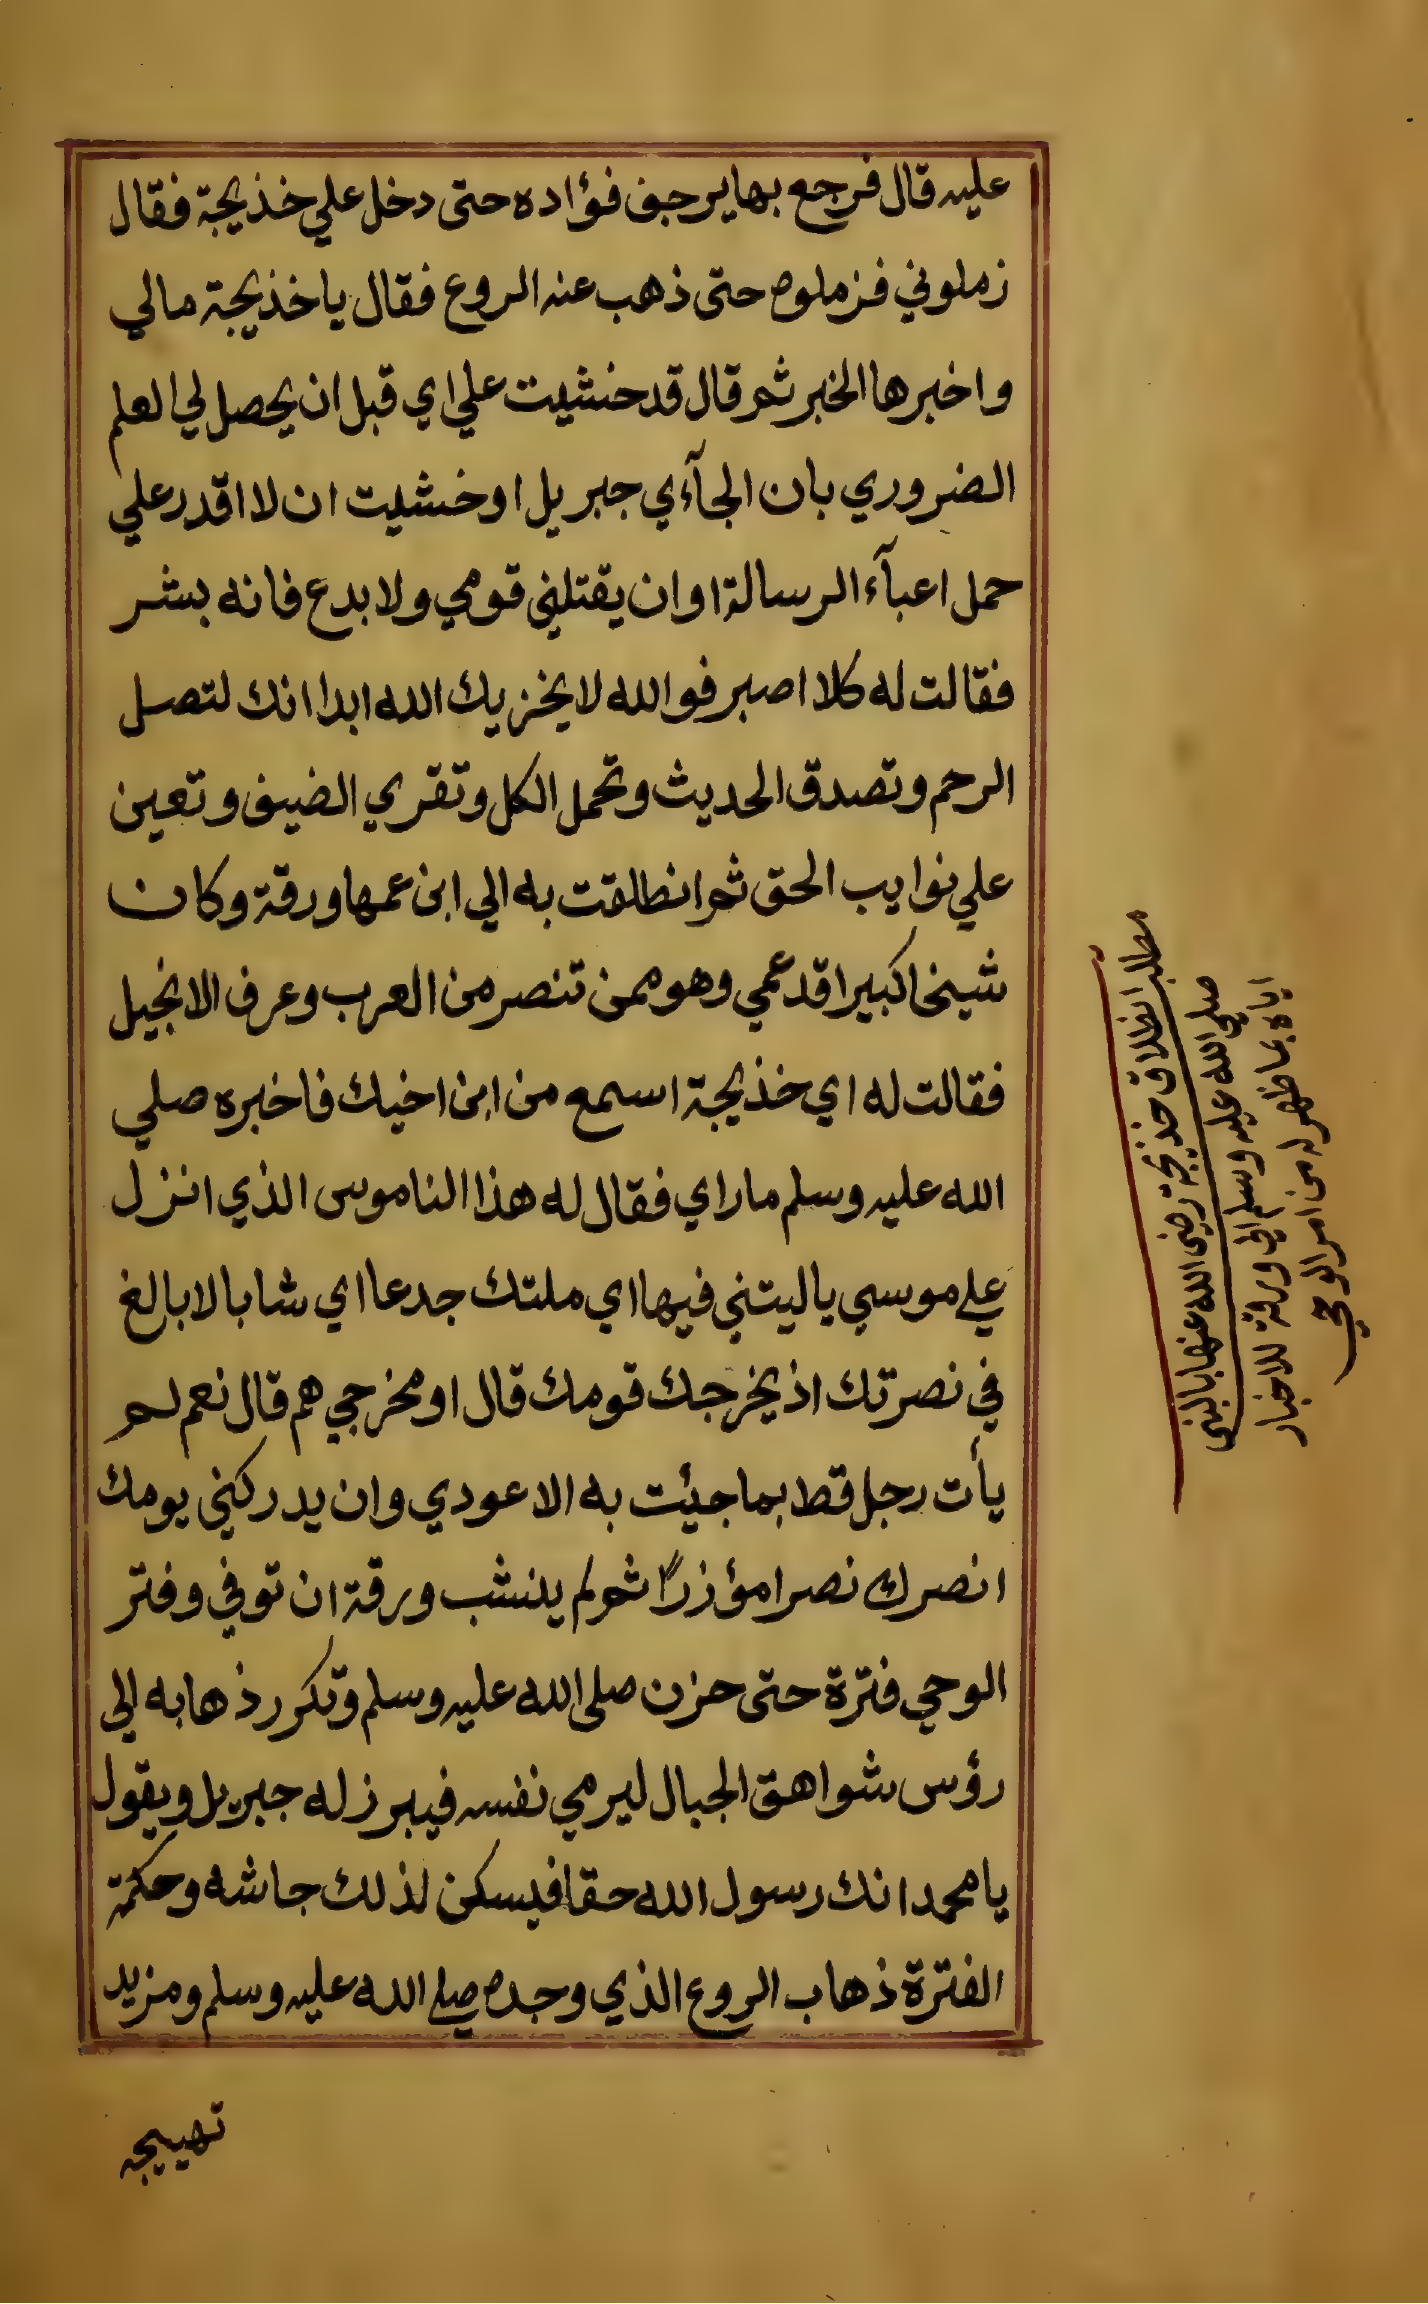 عليه قال فرجع بها يرجف فؤاده حتى دخل علي خذيجة فقال
زملوني فزملوه حتى ذهب عنه الروع فقال يا خذيجة مالي
واخبرها الخبر ثم قال قد خشيت علي اي قبل ان يحصل لي العلم
الضروري بان الجآءي جبريل او خشيت ان لا اقدر علي
حمل اعبآء الرسالة او ان يقتلني قومي ولا بدع فانه بشر
فقالت له كلا اصبر فوالله لا يخزيك الله ابدا انك لتصل
الرحم وتصدق الحديث وتحمل الكل وتقري الضيف وتعين
علي نوايب الحق ثم انطلقت به الي ابن عمها ورقة وكان
شيخا كبيرا قد عمي وهو ممن تنصر من العرب وعرف الانجيل
فقالت له اي خذيجة اسمع من ابن اخيك فاخبره صلي
الله عليه وسلم ما راي فقال له هذا الناموس الذي انزل
علي موسي يا ليتني فيها اي ملتك جدعا اي شابا لابالغ
في نصرتك اذ يخرجك قومك قال او مخرجي هم قال نعم لم
يأت رجل قط بما جئت به الا عودي وان يدركني يومك
انصرك نصرا مؤزرًا ثم لم ينشب ورقة ان توفي وفتر
الوحي فترة حتى حزن صلى الله عليه وسلم وتكرر ذهابه الى
رؤس شواهق الجبال ليرمي نفسه فيبرز له جبريل ويقول
يا محمد انك رسول الله حقا فيسكن لذلك جاشه وحكمة
الفترة ذهاب الروع الذي وجده صلي الله عليه وسلم ومزيد
تهييجه
مطلب انطلاق خذيجة رضى الله عنها بالنبى
صلي الله عليه وسلم الي ورقة للاخبار
اياه بما ظهر له من امر الوحي